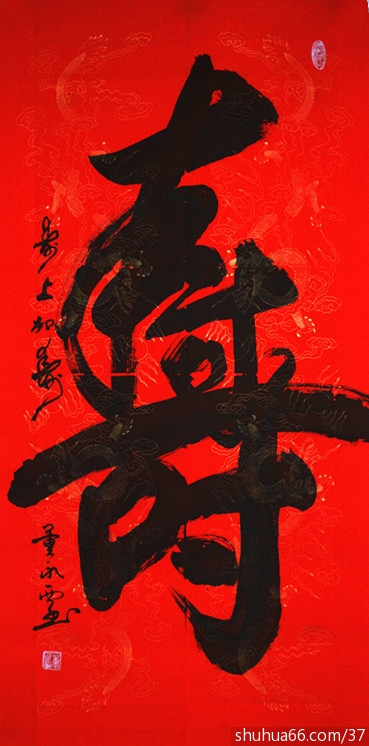 壽
寿上加寿
董永
shuhua66.com/37